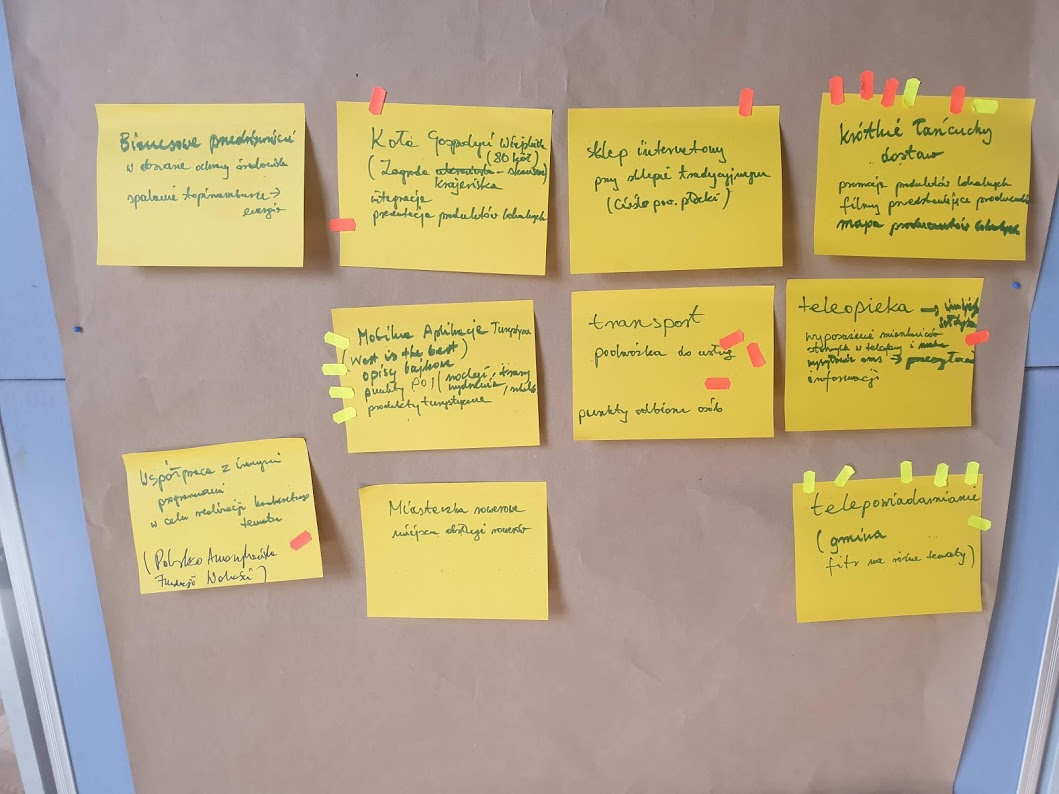 Biznesowe
w obszarze ochrony środowiska
spalanie topinamburze →
energia
Koła Gospodyń Wiejskich
(80 kół)
(Zagroda
Krajeńska
integracja
prezentacja produktów lokalnych
sklep internetowy
przy sklepie tradycyjnym
krótkie łańcuchy
dostaw
promocja produktów lokalnych
filmy przedstawiające producentów
mapa producentów lokalnych
Mobilne Aplikacje Turystyczne
(West is the best)
opisy bajkowe
punkty POI (noclegi,
wydarzenia,
produkty turystyczne
transport
podwózka do usług
punkty odbioru osób
teleopieka →
wyposażenie mieszkańców
starszych w
informacji
Współpraca z innymi
programami
w celu realizacji konkretnego
tematu
(Polsko Amerykańska
Fundacja Wolności)
Miasteczka rowerowe
miejsca obsługi rowerów
telepowiadamianie
(gmina
na różne tematy)